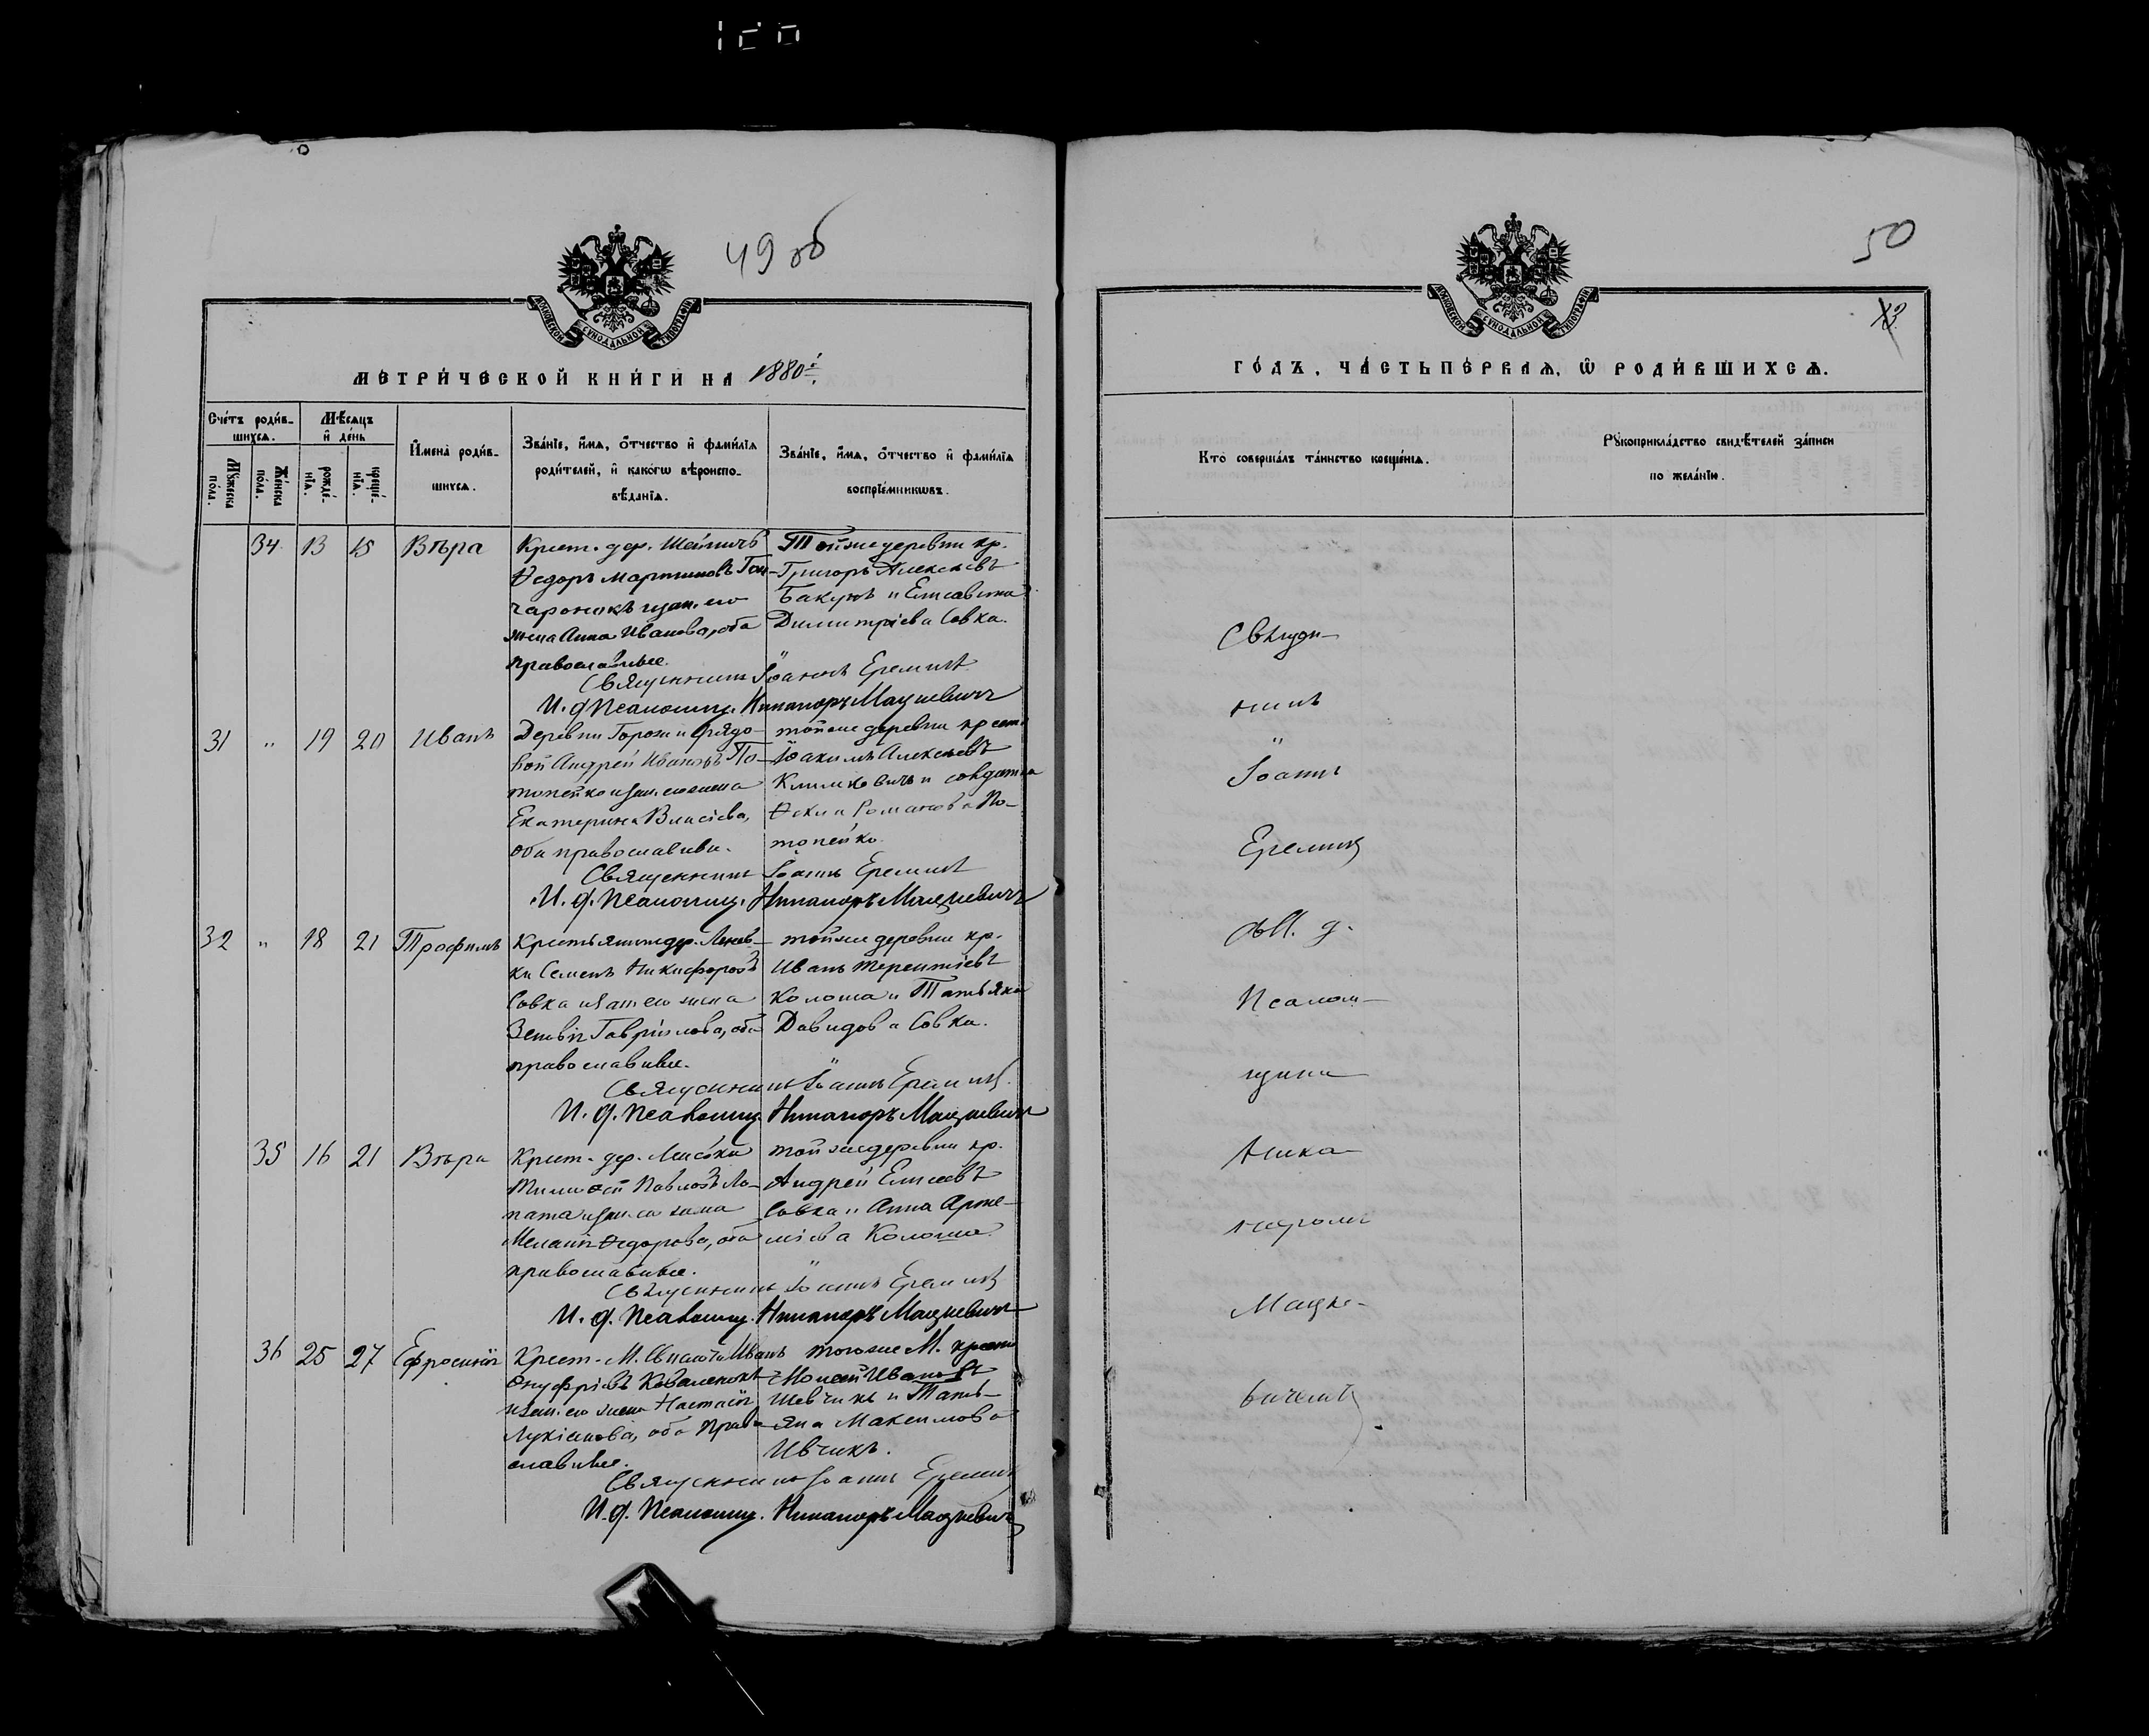 49 об
50
МОСКОВСКОЙ СѴНОДАЛЬНОЙ ТИПОГРАФІИ
МЕТРИ́ЧЕСКОЙ КНИ́ГИ НА 1880й
Сче́тъ роди́в-
шихсѧ.
Мѣ́сѧцъ
и҆ де́нь
Мꙋ́жеска
по́ла.
Же́нска
по́ла.
рожде́-
нїѧ.
креще́-
нїѧ.
И҆мена̀ роди́в-
шихсѧ.
Зва́нїе, и҆́мѧ, ѻ҆́тчество и҆ фами́лїѧ
роди́телей, и҆ како́гѡ вѣроиспо-
вѣ́данїѧ.
Зва́нїе, и҆́мѧ, ѻ҆́тчество и҆ фами́лїѧ
воспрїе́мникѡвъ.
34 13 15 Вѣра
Крест. дер. Шейпичъ
Ѳедоръ Мартиновъ Гон-
чаронокъ изак. его
жена Анна Иванова, оба
православные.
Тойже деревни кр.
Григоръ Алексѣевъ
Бакунъ и Елисавета
Димитріева Совка.
Священникъ Іоаннъ Ереминъ
И. д. Псаломщ. Никаноръ Мацкевичъ
31 " 19 20 Иванъ
Деревни Горожи рядо-
вой Андрей Ивановъ По-
топейко изак. его жена
Екатерина Власіева,
оба православны.
тойже деревни крест.
Іоакимъ Алексѣевъ
Климковичъ и солдатка
Ѳекла Романова По-
топейко.
Священникъ Іоаннъ Ереминъ
И. д. Псаломщ. Никаноръ Мацкевичъ
32 " 18 21 Трофимъ
Крестьянинъ дер.
Семенъ Никифоровъ
Совка изак его жена
Гавріилова, оба
православные.
тойже деревни кр.
Иванъ Терентіевъ
Колоша и Татьяна
Давидова Совка.
Священникъ Іоаннъ Ереминъ
И. д. Псаломщ. Никаноръ Мацкевичъ
35 16 21 Вѣра
Крест. дер.
Тимоѳей Павловъ Ло-
пата изак. его жена
Меланія Ѳедорова, оба
православные.
тойже деревни кр.
Андрей Елисеевъ
Совка и Анна Арте-
міева Колоша
Священникъ Іоаннъ Ереминъ
И. д. Псаломщ. Никаноръ Мацкевичъ
36 25 27 Ефросинія
Крест. М. Свислочи Иванъ
Онуфріевъ Коваленокъ
изак. его жена Настасія
Лукіанова, оба право-
славные.
тогоже М. крест.
Моисей Ивановъ
Шевчикъ и Тать-
яна Максимова
Ивчикъ.
Священникъ Іоаннъ Ереминъ
И. д. Псаломщ. Никаноръ Мацкевичъ
МОСКОВСКОЙ СѴНОДАЛЬНОЙ ТИПОГРАФІИ
ГО́ДЪ, ЧА́СТЬ ПЕ́РВАѦ, Ѡ҆ РОДИ́ВШИХСѦ.
Кто̀ соверша́лъ та́инство креще́нїѧ.
Рꙋкоприкла́дство свидѣ́телей за́писи
по жела́нїю.
Священ-
никъ
Іоаннъ
Ереминъ
И. д.
Псалом-
щика
Ника-
норъ
Мацке-
вичъ